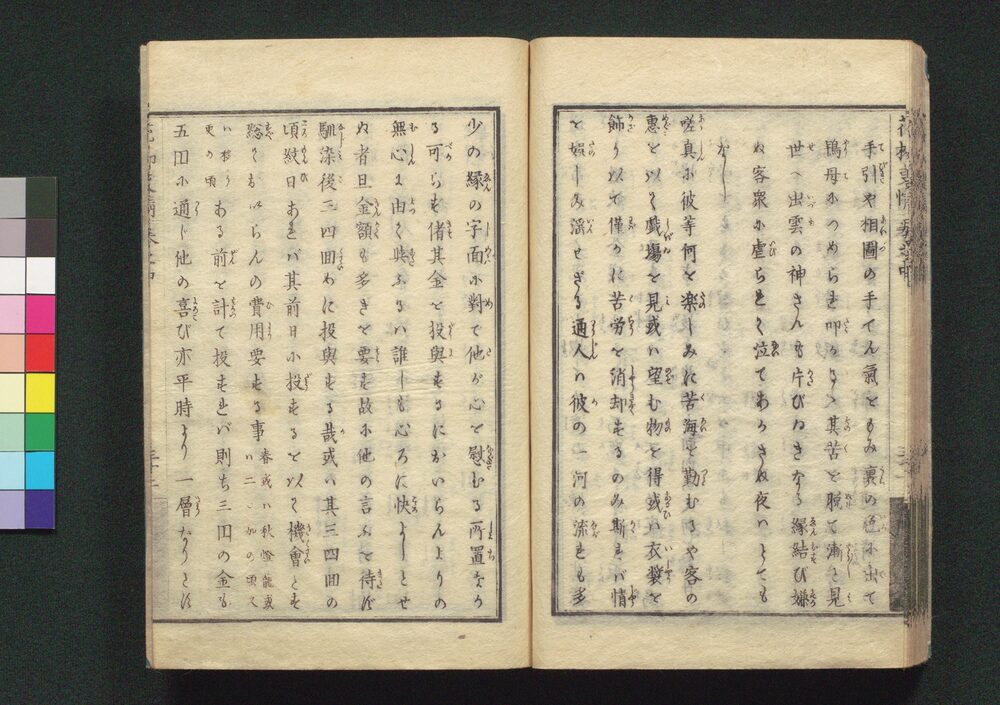 手引や相圖の手てん氣ともみ裏の色に出て
鴇母につめられ叩かるゝ其苦を脱て漸々見
世へ出雲の神さんも片びゐきなる縁結び嫌
ぬ客衆に虐られて泣てあかさぬ夜はとても
なし
嗟真に彼等何を楽しみに苦海を勤むるや客の
惠を以て戯場を見或は望む物を得或は衣裳を
飾り以て僅かに苦労を消却するのみ斯れば情
を娯しみ溺せざる通人は彼の一河の流れも多
少の縁の字面に對て他が心を慰むる所置なか
る可らず偖其金を投與するにかいらんよりの
無心に由て與ふるは誰しも心ろに快よしとせ
ぬ者旦金額も多きを要す故に他の言ふを待ず
馴染後三四回めに投與する哉或は其三四回の
頃紋日あれば其前日に投ずるを以て機會とす
総ておいらんの費用要する事 春或は秋燈籠或は二〇加の頃又
は移りかへの頃 ある前を計て投ずれば則ち三円の金も
五円に通じ他の喜び亦平時より一層なりとす